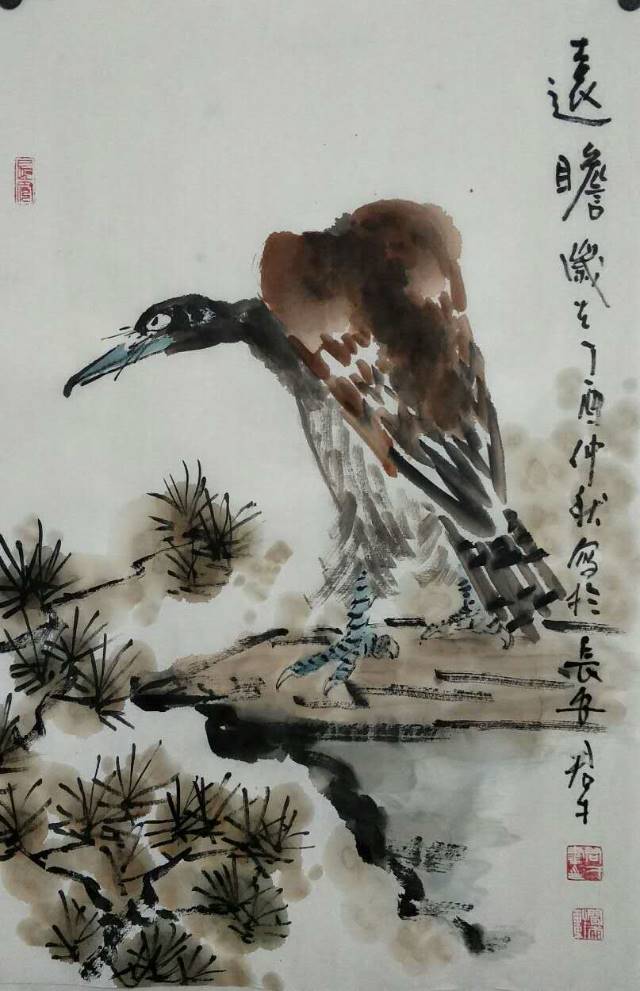 遠瞻歲在丁酉仲秋寫於長安